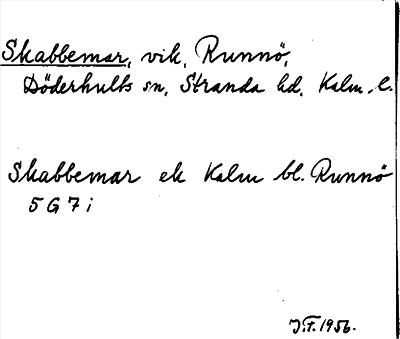 Skabbemar, vik, Runnö,
Döderhults sn, Stranda hd, Kalm. l.
Skabbemar ek Kalm bl. Runnö
5 G 7 i
J.F. 1956.